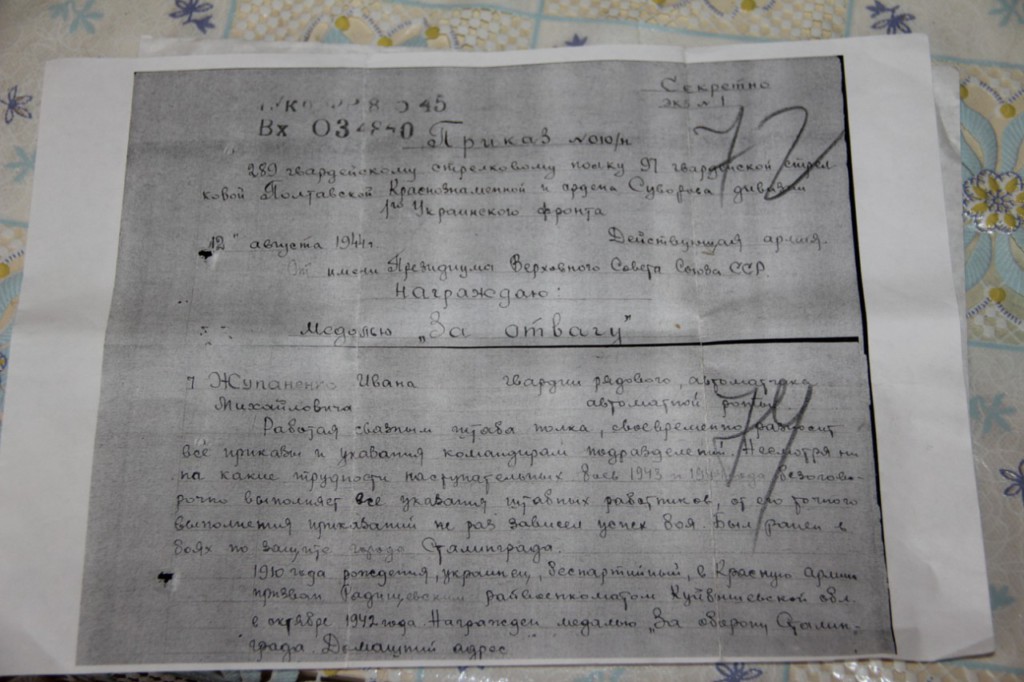 Секретно
экз №1
8 45
Вх 03
Приказ №010/н
289 гвардейскому стрелковому полку 97 гвардейской стрел
ковой Полтавской Краснознаменной и ордена Суворова дивизии
1го Украинского фронта
"12" августа 1944г
Действующая армия.
От имени Президиума Верховного Совета Союза ССР.
Награждаю:
Медалью „За отвагу"
72
Жупаненко Ивана гвардии рядового, автоматчика
Михайловича автоматной роты.
Работая связным штаба полка, своевременно разносит
все приказы и указания командирам подразделений. Несмотря ни
на какие трудности наступательных боев 1943 и года безогово-
рочно выполняет все указания штабных работников, от его точного
выполнения приказаний не раз зависел успех боя. Был ранен в
боях по защите города Сталинграда.
1910 года рождения, украинец, беспартийный, в Красную армию
призван Радищевским райвоенкоматом Куйбышевской обл.
в октябре 1942 года. Награжден медалью „За оборону Сталин-
града. Домашний адрес